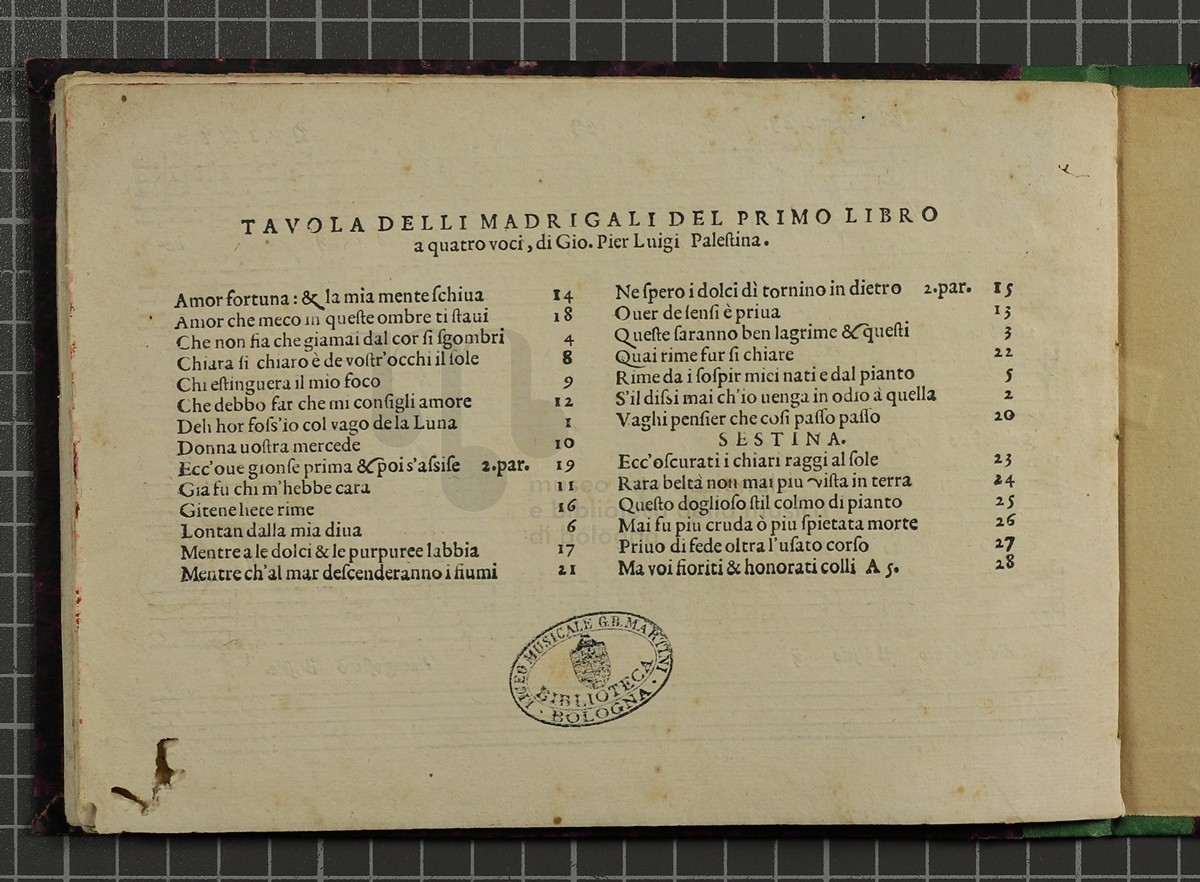 TAVOLA DELLI MADRIGALI DEL PRIMO LIBRO
a quatro voci, di Gio. Pier Luigi Paleſtina.
Amor fortuna: & la mia mente ſchiua 14
Amor che meco in queſte ombre ti ſtaui 18
Che non fia che giamai dal cor ſi ſgombri 4
Chiara ſi chiaro è de voſtr'occhi il ſole 8
Chi eſtinguera il mio foco 9
Che debbo far che mi conſigli amore 12
Deh hor foſs'io col vago de la Luna 1
Donna uoſtra mercede 10
Ecc'oue gionſe prima & poi s'aſsiſe 2.par. 19
Gia fu chi m'hebbe cara 11
Gitene liete rime 16
Lontan dalla mia diua 6
Mentre a le dolci & le purpuree labbia 17
Mentre ch'al mar deſcenderanno i fiumi 21
Ne ſpero i dolci dì tornino in dietro 2.par. 15
Ouer de ſenſi è priua 13
Queſte ſaranno ben lagrime & queſti 3
Quai rime fur ſi chiare 22
Rime da i ſoſpir mici nati e dal pianto 5
S'il diſsi mai ch'io uenga in odio à quella 2
Vaghi penſier che coſi paſſo paſſo 20
SESTINA.
Ecc'oſcurati i chiari raggi al ſole 23
Rara beltà non mai piu viſta in terra 24
Queſto doglioſo ſtil colmo di pianto 25
Mai fu piu cruda ò piu ſpietata morte 26
Priuo di fede oltra l'uſato corſo 27
Ma voi fioriti & honorati colli A 5. 28
museo
e biblioteca
di bologna
LICEO MUSICALE G.B. MARTINI
BIBLIOTECA
· BOLOGNA ·